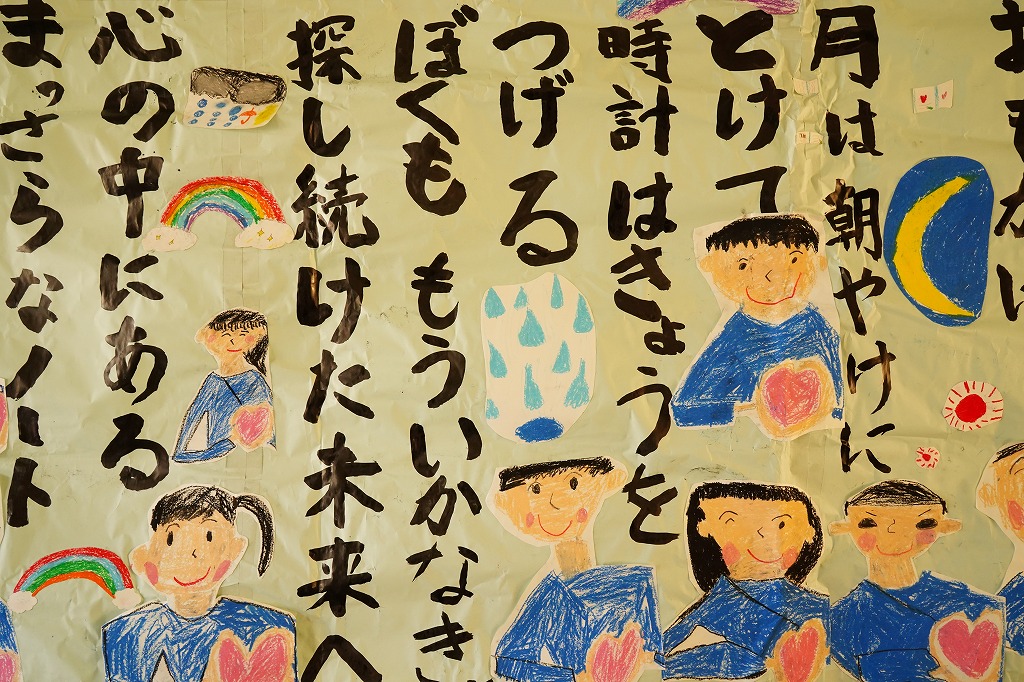 月は 朝やけに
とけて
時計はきょうを
つげる
ぼくも もういかなき
探し続けた未来へ
心の中にある
まっさらなノート